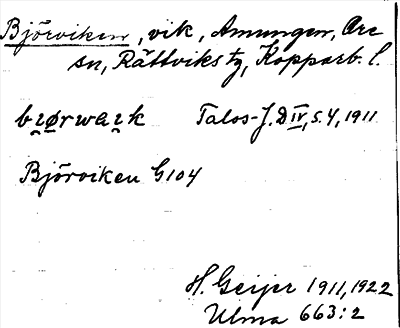 Björviken, vik, Amungen, Ore
sn, Rättviks tg, Kopparb. l.
Talos-J. D IV, s. 4, 1911
Björviken G104
H. Geijer 1911, 1922
Ulma 663:2